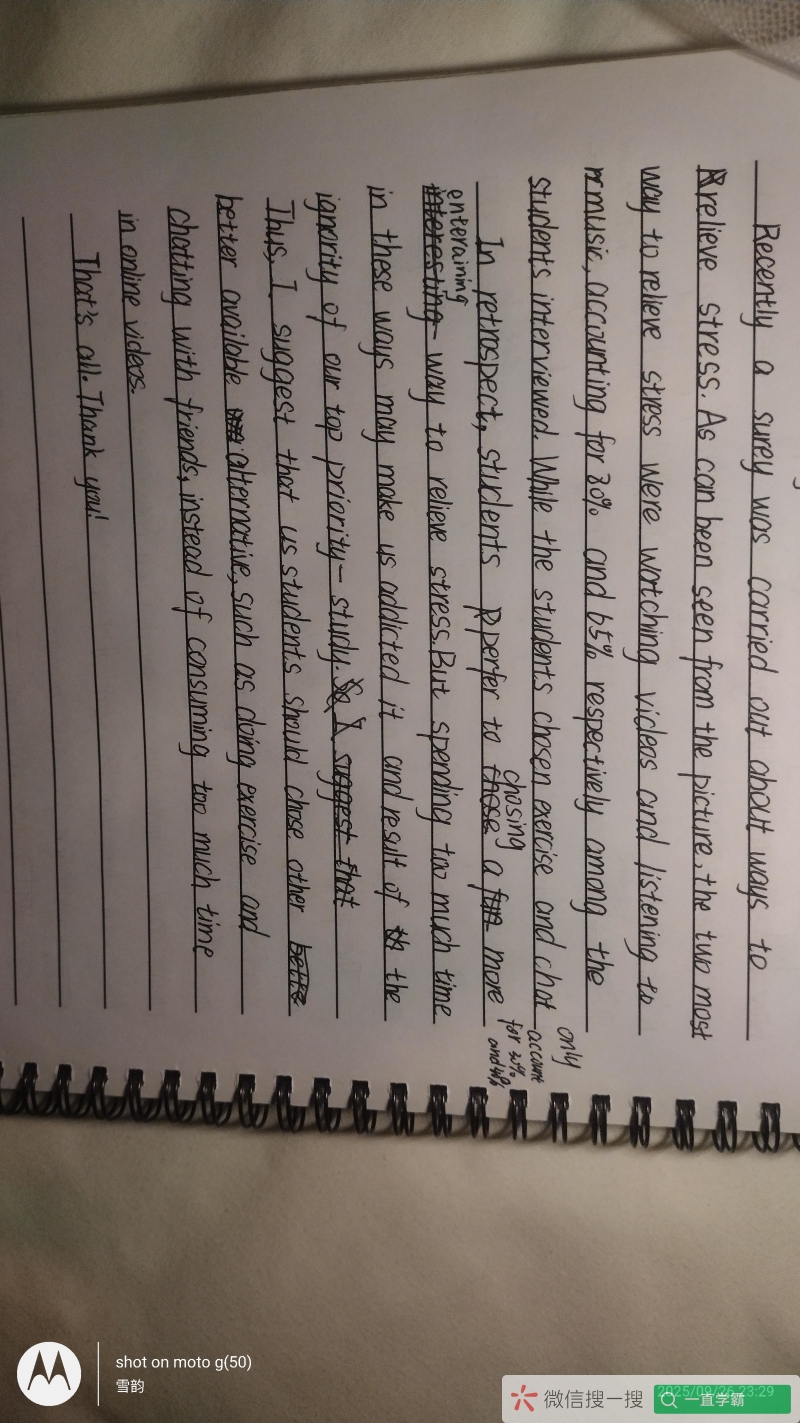 Recently a surey was carried out about ways to
relieve stress. As can been seen from the picture, the two most
way to relieve stress were watching videos and listening to
music, accounting for 80% and 65% respectively among the
students interviewed. While the students chosen exercise and chat only account for 30% and 40%
In retrospect, students perfer to chosing a more
enteraining way to relieve stress. But spending too much time
in these ways may make us addicted it and result of the
ignority of our top priority – study. So I suggest that
Thus, I suggest that us students should chose other bette
better available alternative, such as doing exercise and
chatting with friends, instead of consuming too much time
in online videos.
That's all. Thank you!
shot on moto g(50)
雪韵
微信搜一搜
一直学霸
2025/09/26 23:29